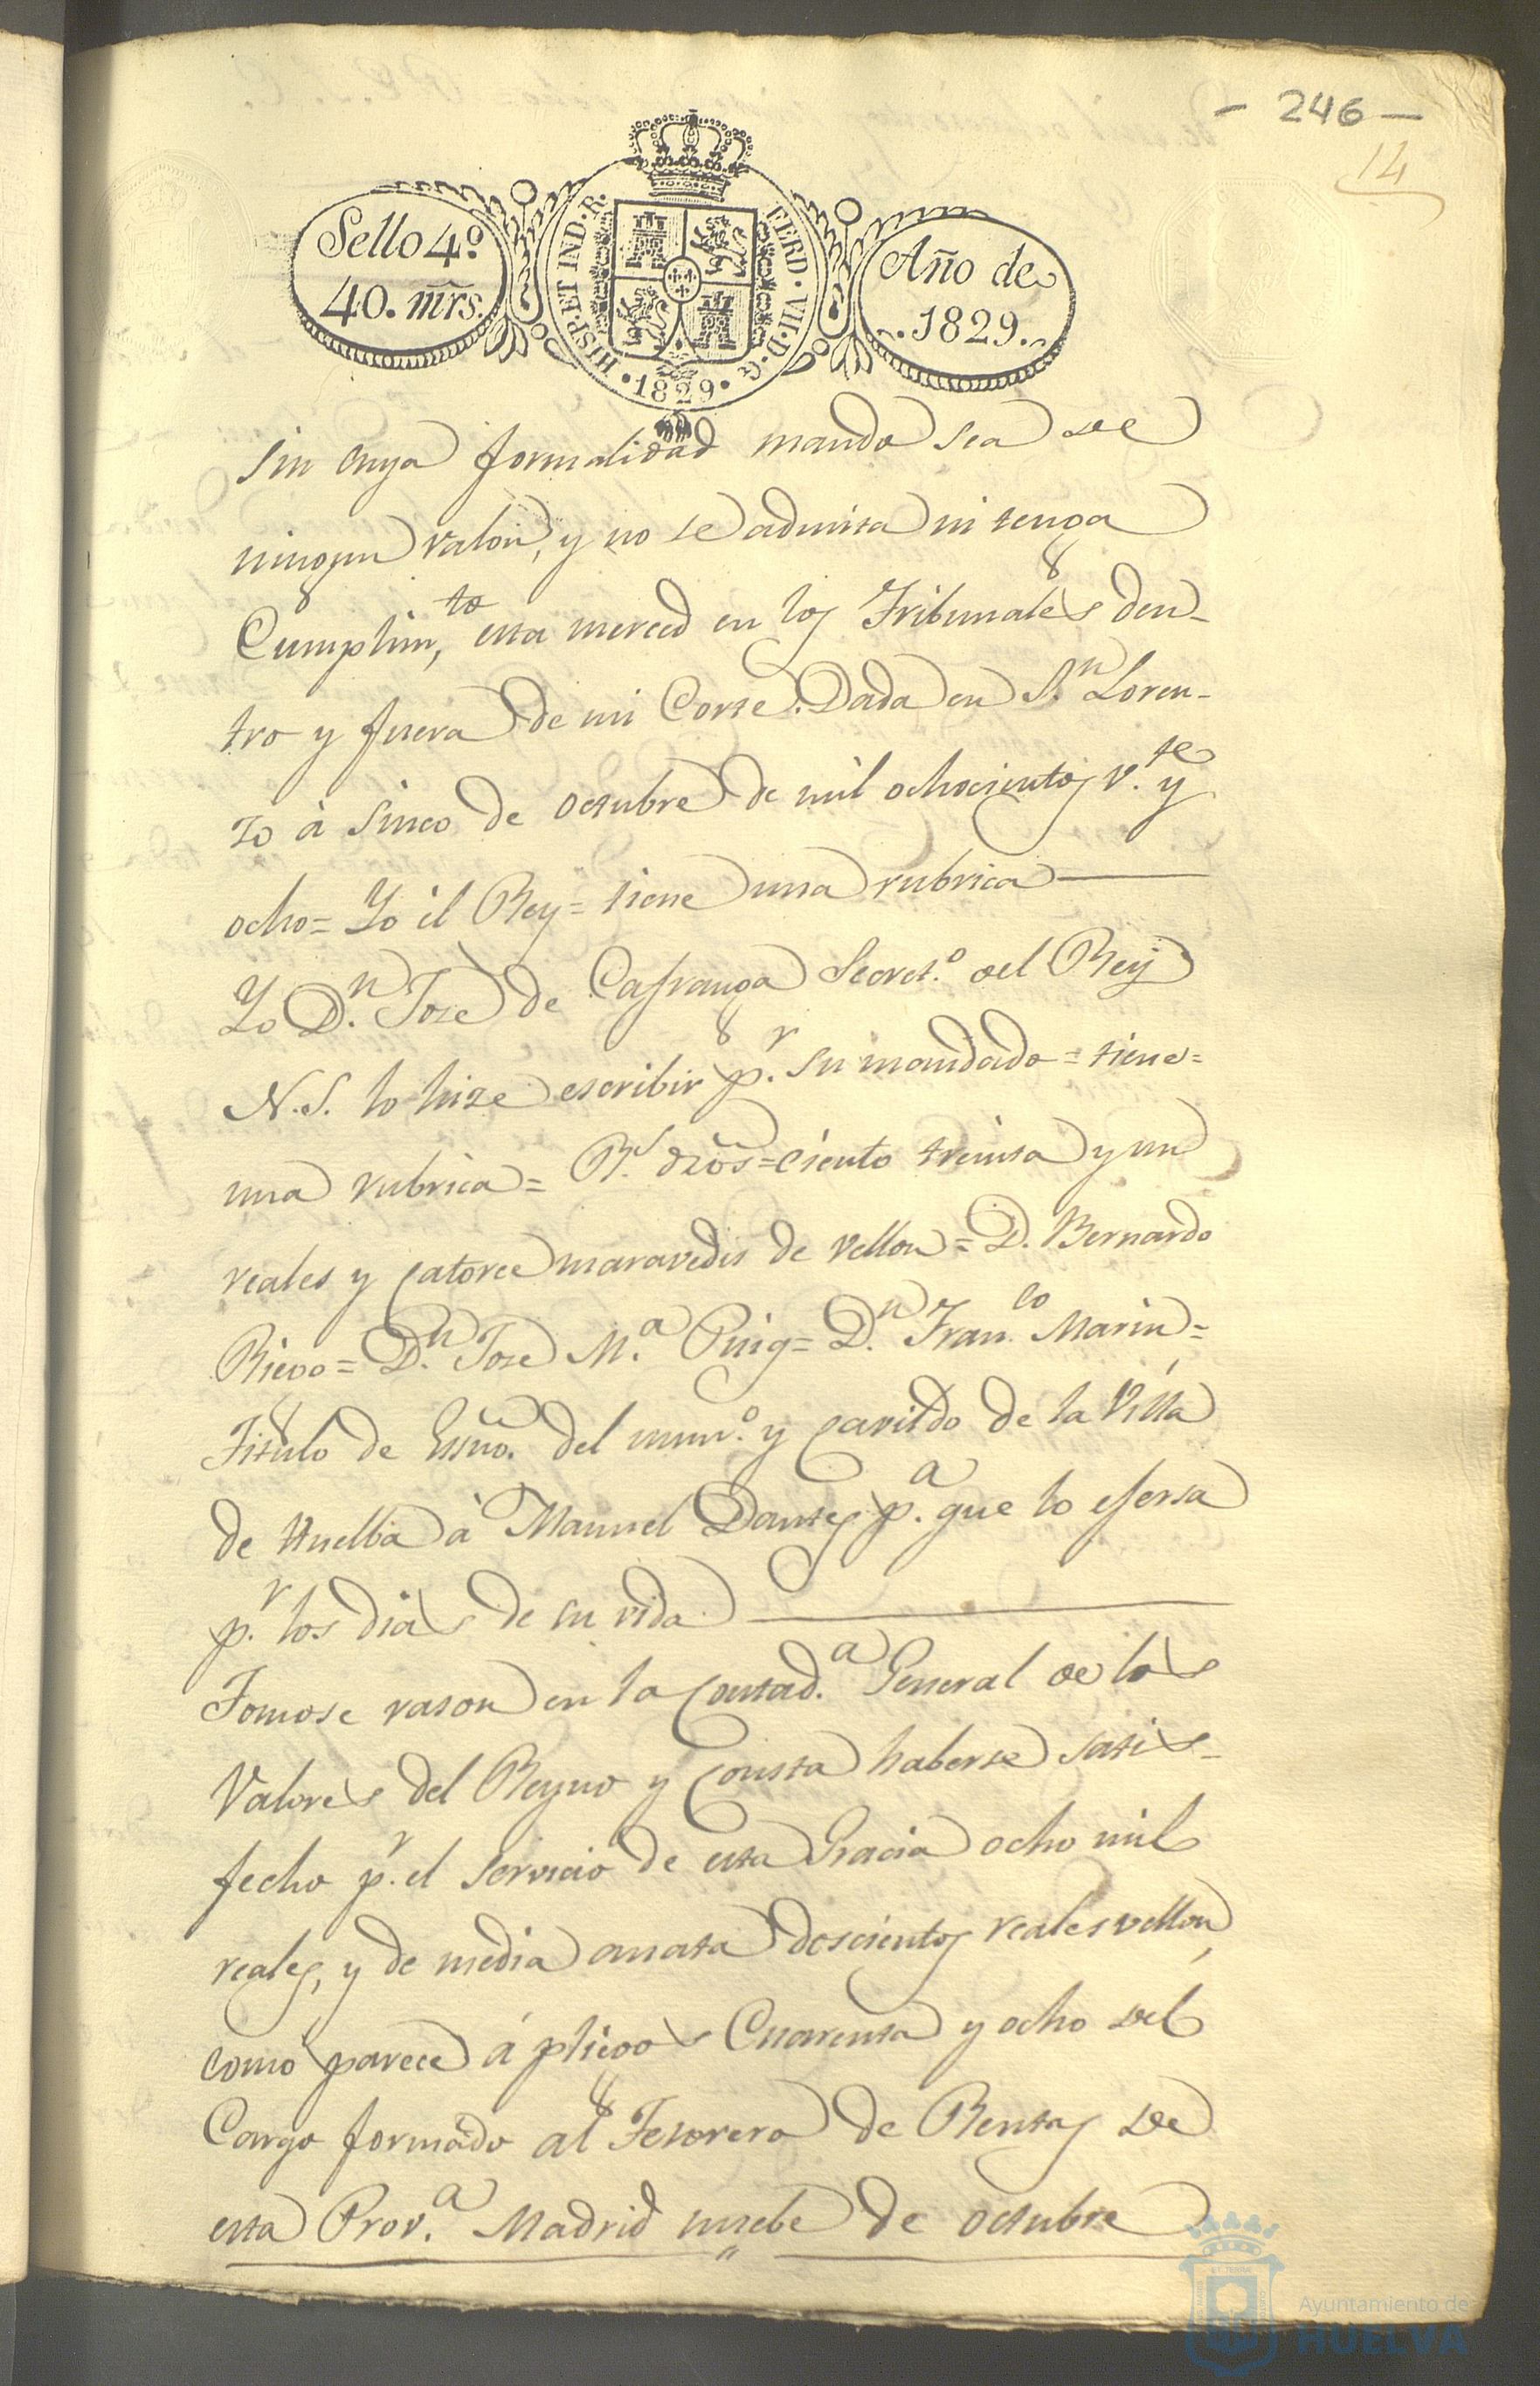 - 246 -
14
Sello 4º
40. mrs.
HISP. ET IND. R.
FERD. VII. D. G.
• 1829 •
Año de
1829
sin cuya formalidad mando sea de
ningun valor, y no se admita ni tenga
Cumplim.to esta merced en los Tribunales den-
tro y fuera de mi Corte. Dada en S.n Loren-
zo à Sinco de octubre de mil ochocientos v.te y
ocho = Yo el Rey = tiene una rubrica ———
Yo D.n Jose de Cafranga Secret.º del Rey
N. S. lo hize escribir p.r su mandado = tiene =
una rubrica = R.s dr̃os = ciento treinta y un
reales y catorce maravedis de vellon = D. Bernardo
Riego = D.n Jose M.a Puig = D.n Fran.co Marin =
Titulo de Essno. del num.º y cavildo de la Villa
de Huelba à Manuel Dantes p.a que lo ejersa
p.r los dias de su vida ———
Tomose rason en la Contad.a General de los
Valores del Reyno y Consta haberse satis-
fecho p.r el servicio de esta Gracia ocho mil
reales, y de media anata doscientos reales vellon,
como parece á pliegos Cuarenta y ocho del
Cargo formado al Tesorero de Rentas de
esta Prov.a Madrid nuebe de octubre
Ayuntamiento de
HUELVA